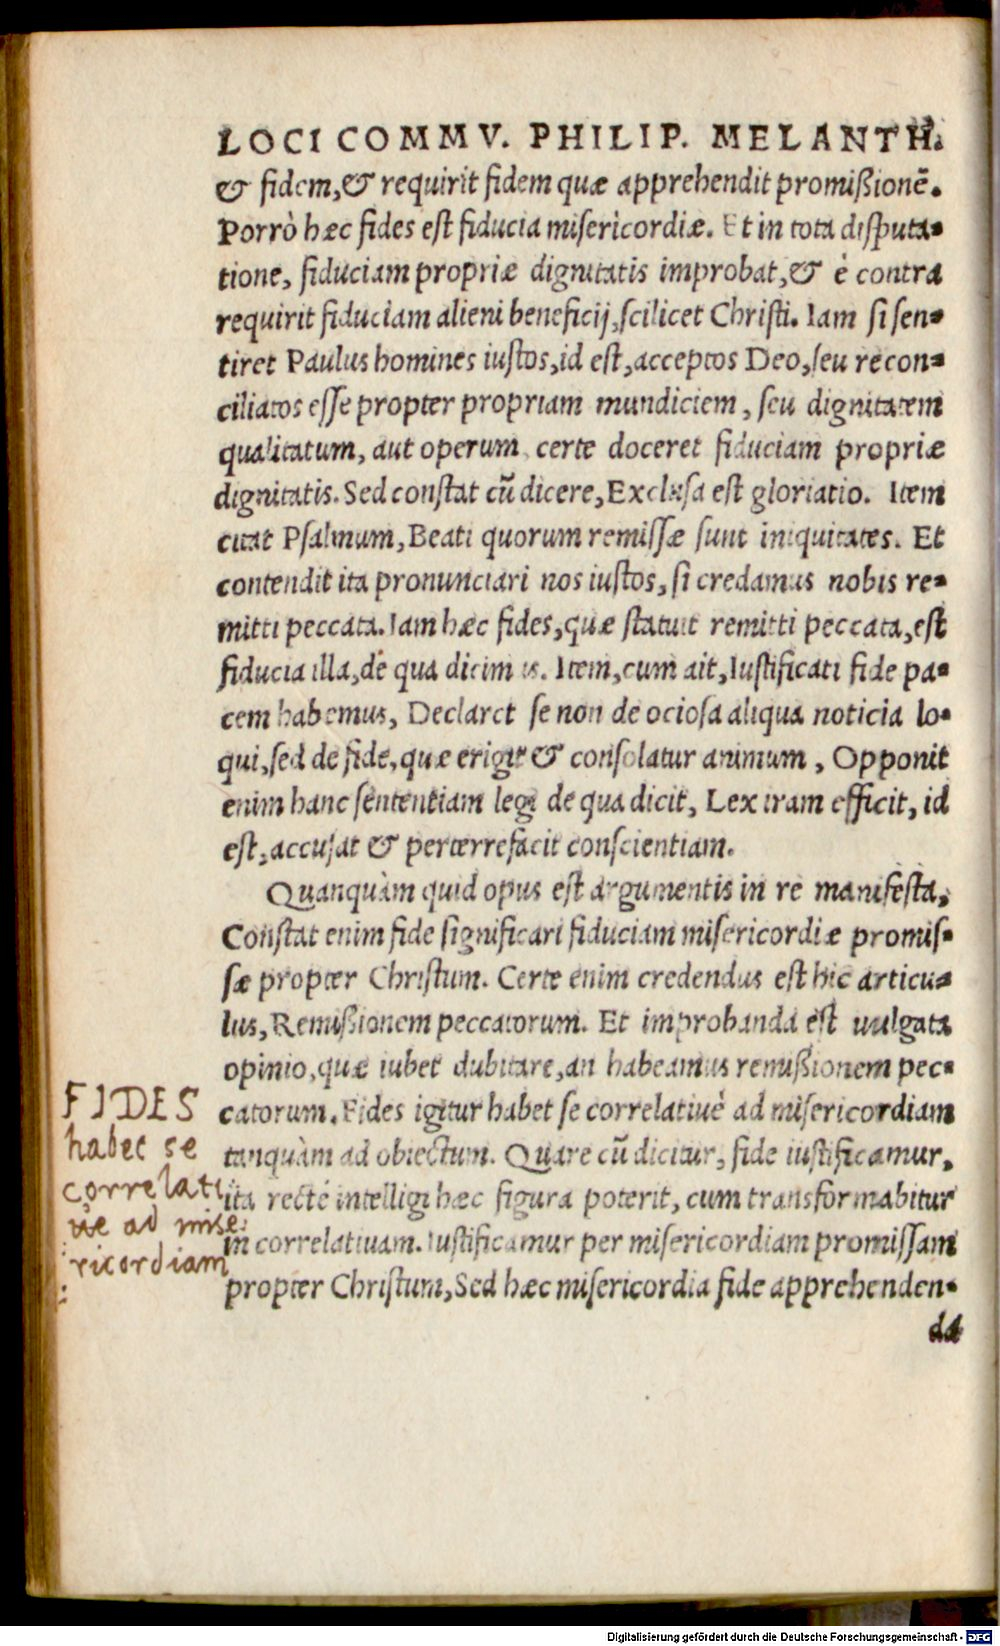 LOCI COMMV. PHILIP. MELANTH.
& fidem, & requirit fidem quæ apprehendit promißionē.
Porrò hæc fides est fiducia misericordiæ. Et in tota disputa-
tione, fiduciam propriæ dignitatis improbat, & è contra
requirit fiduciam alieni beneficij, scilicet Christi. Iam si sen-
tiret Paulus homines iustos, id est, acceptos Deo, seu recon-
ciliatos esse propter propriam mundiciem, seu dignitatem
qualitatum, aut operum, certe doceret fiduciam propriæ
dignitatis. Sed constat cū dicere, Exclusa est gloriatio. Item
citat Psalmum, Beati quorum remissæ sunt iniquitates. Et
contendit ita pronunciari nos iustos, si credamus nobis re-
mitti peccata. Iam hæc fides, quæ statuit remitti peccata, est
fiducia illa, de qua dicimus. Item, cum ait, Iustificati fide pa-
cem habemus, Declaret se non de ociosa aliqua noticia lo-
qui, sed de fide, quæ erigit & consolatur animum, Opponit
enim hanc sententiam legi de qua dicit, Lex iram efficit, id
est, accusat & perterrefacit conscientiam.
Quanquàm quid opus est argumentis in re manifesta,
Constat enim fide significari fiduciam misericordiæ promis-
sæ propter Christum. Certe enim credendus est hic articu-
lus, Remißionem peccatorum. Et improbanda est uulgata
opinio, quæ iubet dubitare, an habeamus remißionem pec-
catorum. Fides igitur habet se correlatiuè ad misericordiam
tanquàm ad obiectum. Quare cū dicitur, fide iustificamur,
ita rectè intelligi hæc figura poterit, cum transformabitur
in correlatiuam. Iustificamur per misericordiam promissam
propter Christum, Sed hæc misericordia fide apprehenden-
da
FIDES
habet se
correlati
ue ad mise
ricordiam
Digitalisierung gefördert durch die Deutsche Forschungsgemeinschaft - DFG